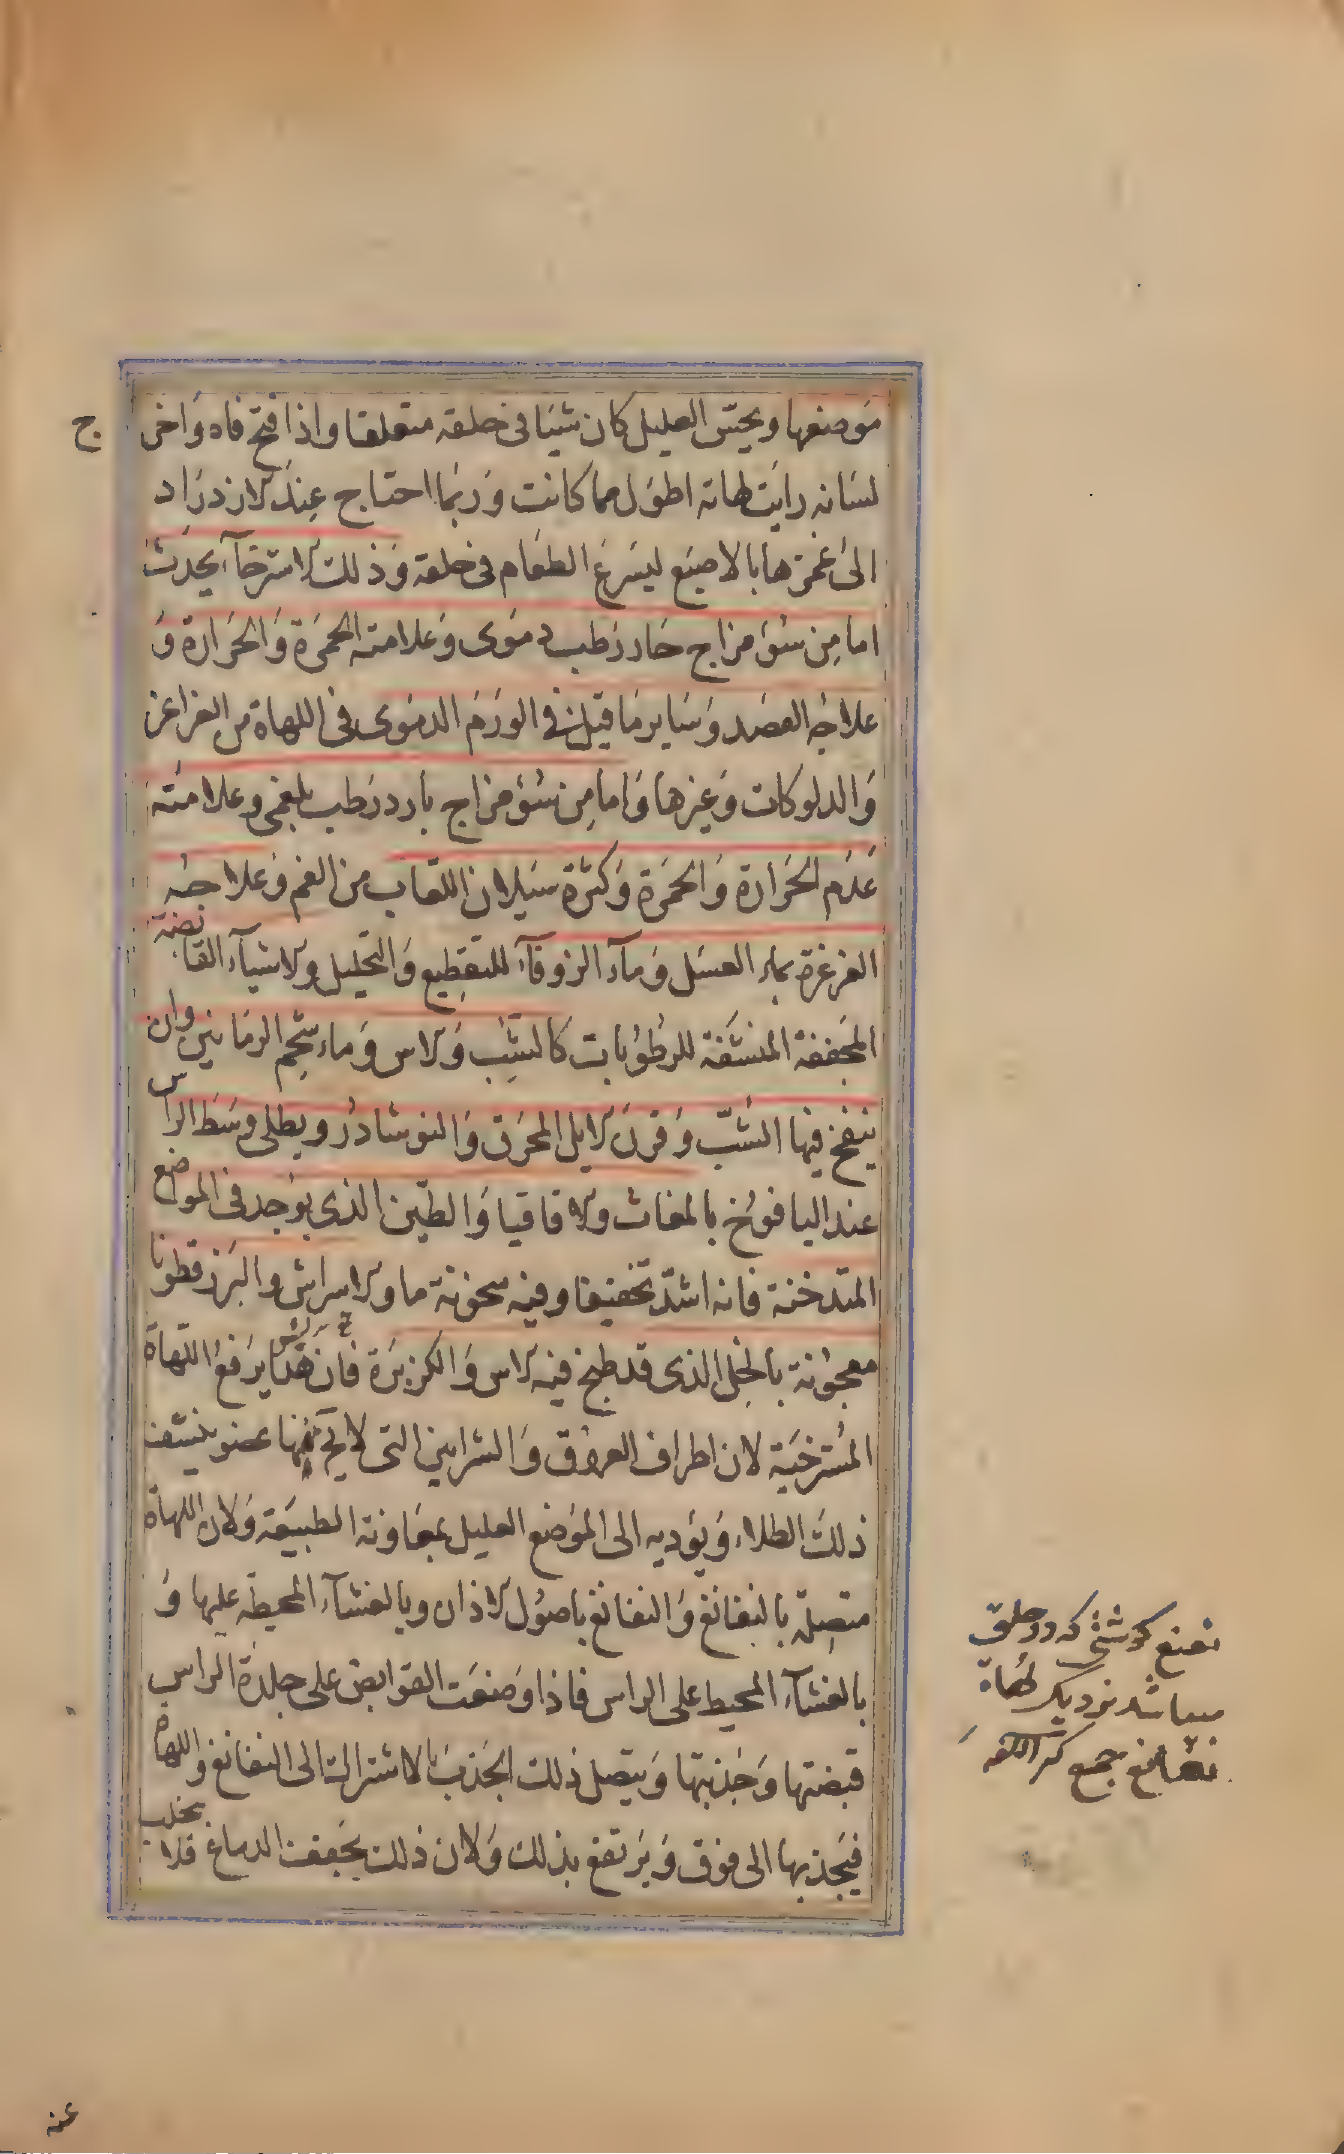 موضعها ويحسّ العليل كان شيئا فى حلقه متعلقا واذا فتح فاه واخر
ج
لسانه رايت لهاته اطول مما كانت وربما احتاج عند الازدراد
الى غمزها بالاصبع ليسرع الطعام فى حلقه وذلك الاسترخآء يحدث
اما من سوء مزاج حار رطب دموى وعلامته الحمرة والحرارة و
علاجه الفصد وساير ما قيل فى الورم الدموى فى اللهاة من الغراغر
والدلوكات وغيرها واما من سوء مزاج بارد رطب بلغمى وعلامته
عدم الحرارة والحمرة وكثرة سيلان اللعاب من الفم وعلاجه
الغرغرة بماء العسل ومآء الزوفآء للتقطيع والتحليل والاشيآء القابضة
المجففة المنشفة للرطوبات كالشب والاس وماء شحم الرمانين وان
ينفخ فيها الشبّ وقرن الايل المحرق والنوشادر ويطلى وسط الراس
عند اليافوخ بالمغاث والاقاقيا والطين الذى يوجد فى المواضع
المتدخنة فانه اشدّ تخفيفا وفيه سخونة ما والاسراش والبزرقطونا
معجونة بالخل الذى قد طبخ فيه الاس والكزبرة فان هذا يرفع اللهاة
المسترخية لان اطراف العروق والشرايين التى لا يخ منها عضو ينشف
ذلك الطلاء ويؤديه الى الموضع العليل بمعاونة الطبيعة ولان اللهاة
متصلة بالنغانغ والنغانغ باصول الاذان وبالغشآء المحيطة عليها و
بالغشآء المحيط على الراس فاذا وضعت القوابض على جلدة الراس
قبضتها وجذبتها ويتصل ذلك الجذب بالاشتراك الى النغانغ واللهاة
فيجذبها الى فوق ويرتفع بذلك ولان ذلك يجفف الدماغ فلا يتحلب
نغنغ كوشتى كه در حلق
ميباشد نزديك لهاة
نغانغ جمع
عنه